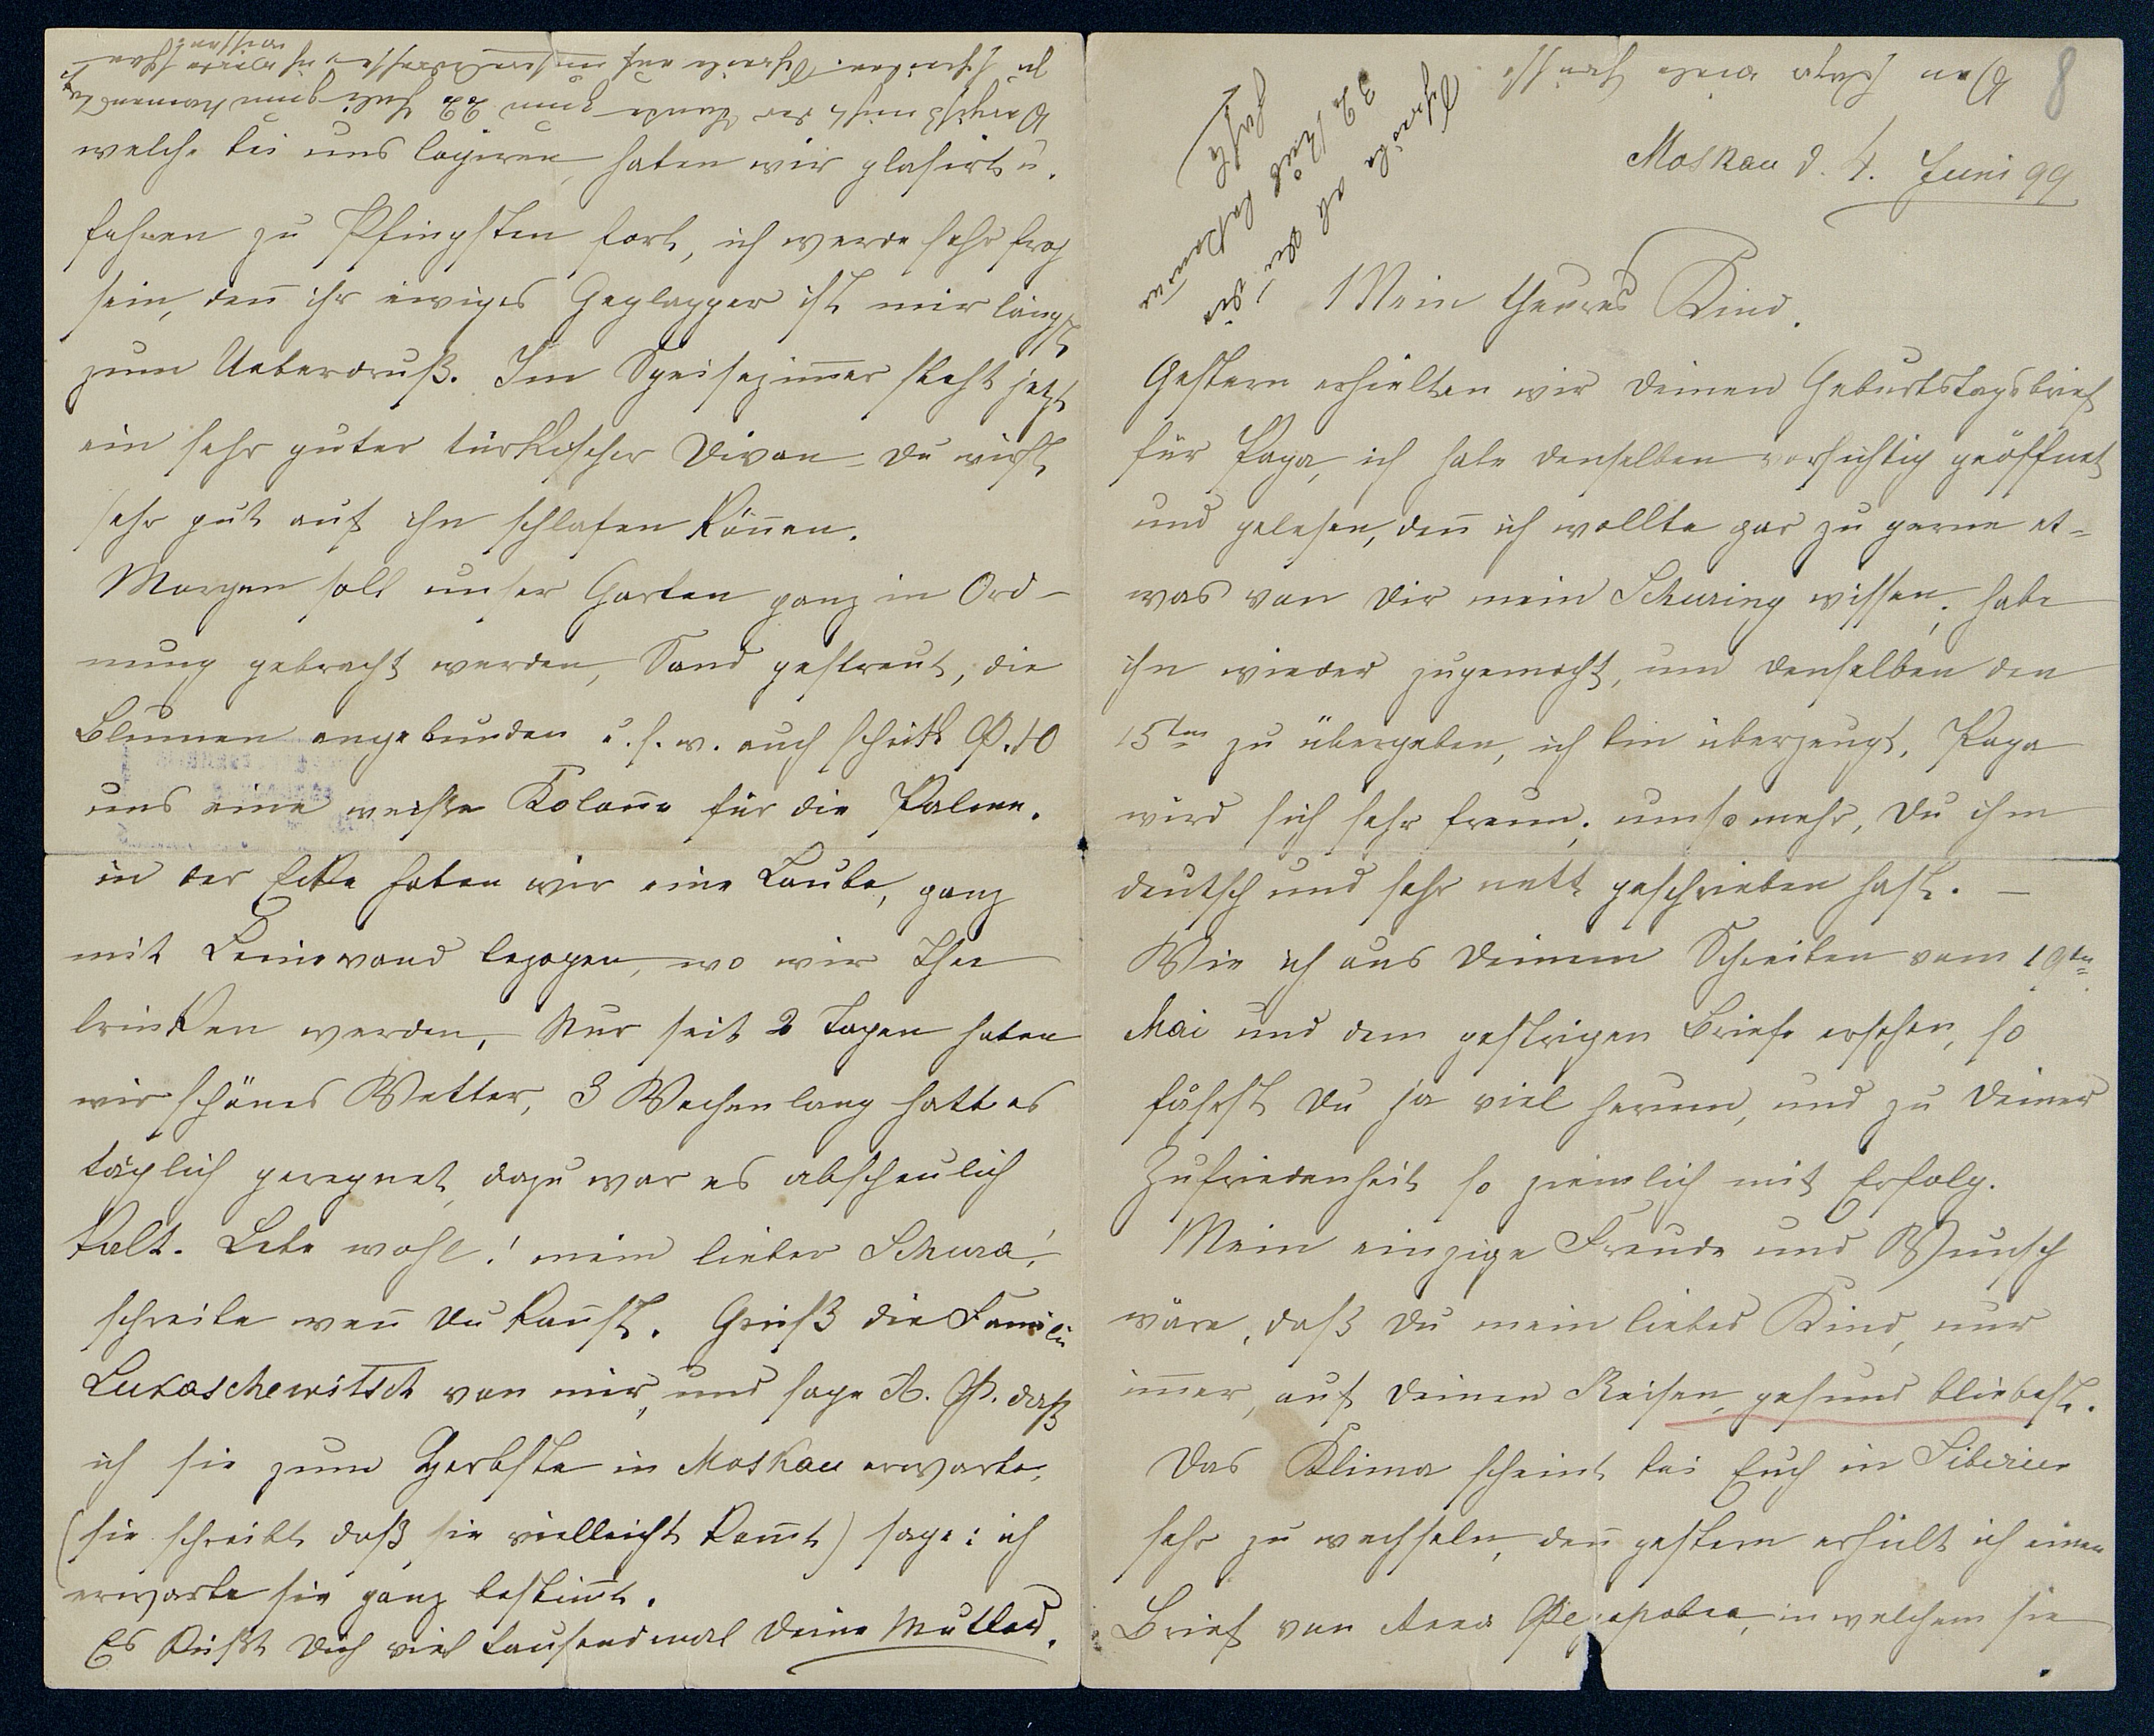 8
Von Papa viele Grüsse
Schreibe ob Du die
32 Rub. bekommen
hast
Moskau d. 4. Juni 99
Mein theures Kind.
Gestern erhielten wir deinen Geburtstagsbrief
für Papa, ich habe denselben vorsichtig geöffnet
und gelesen, deñ ich wollte gar zu gerne et=
was von dir mein Schuring wissen, habe
ihn wieder zugemacht, um denselben den
15ten zu übergeben, ich bin überzeugt, Papa
wird sich sehr freun, umsomehr, du ihm
deutsch und sehr nett geschrieben hast. —
Wie ich aus deinem Schreiben vom 19ten
Mai und dem gestrigen Briefe ersehen, so
fährst du ja viel herum, und zu deiner
Zufriedenheit so ziemlich mit Erfolg.
Mein einzige Freude und Wunsch
wäre, daß du mein liebes Kind, nur
im̄er, auf deinen Reisen, gesund bliebest.
Das Klima scheint bei Euch in Sibirien
sehr zu wechseln, deñ gestern erhielt ich einen
Brief von Анна in welchem sie
welche bei uns logiren, haben wir plasirt u.
fahren zu Pfingsten fort, ich werde sehr froh
sein, deñ ihr ewiges Geplapper ist mir längst
zum Ueberdruß. Im Speisezim̄er steht jetzt
ein sehr guter türkischer Divan = du wirst
sehr gut auf ihn schlafen köñen.
Morgen soll unser Garten ganz in Ord-
nung gebracht werden, Sand gestreut, die
Blumen angebunden u.s.w. auch schickt
uns eine weiße Koloñe für die Palme.
in der Ecke haben wir eine Laube, ganz
mit Leinwand bezogen, wo wir Thee
trinken werden, Nur seit 2 Tagen haben
wir schönes Wetter, 3 Wochen lang hatt es
täglich geregnet, dazu war es abscheulich
kalt. Lebe wohl! mein lieber Schura!
schreibe weñ du kañst. Grüß die Familie
Lukaschewitsch von mir, und sage A. Ф. daß
ich sie zum Herbste in Moskau erwarte,
(sie schreibt daß sie vielleicht kom̄t) sage: ich
erwarte sie ganz bestim̄t.
Es küßt dich viel tausendmal deine Mutter.
Vergiß nicht der Tante zum 22 Juli zum Namenstag
zu schreiben. Schreibe auf unsere Adresse, ich werde schon